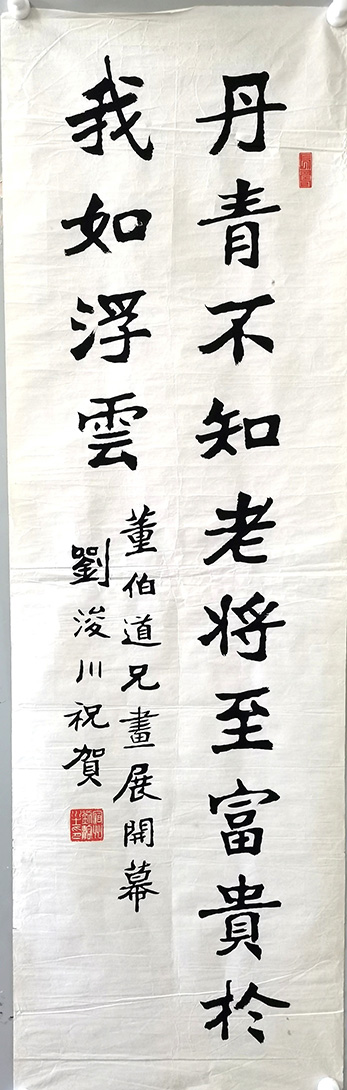 丹青不知老将至富貴於
我如浮雲
董伯道兄畫展開幕
劉浚川祝賀